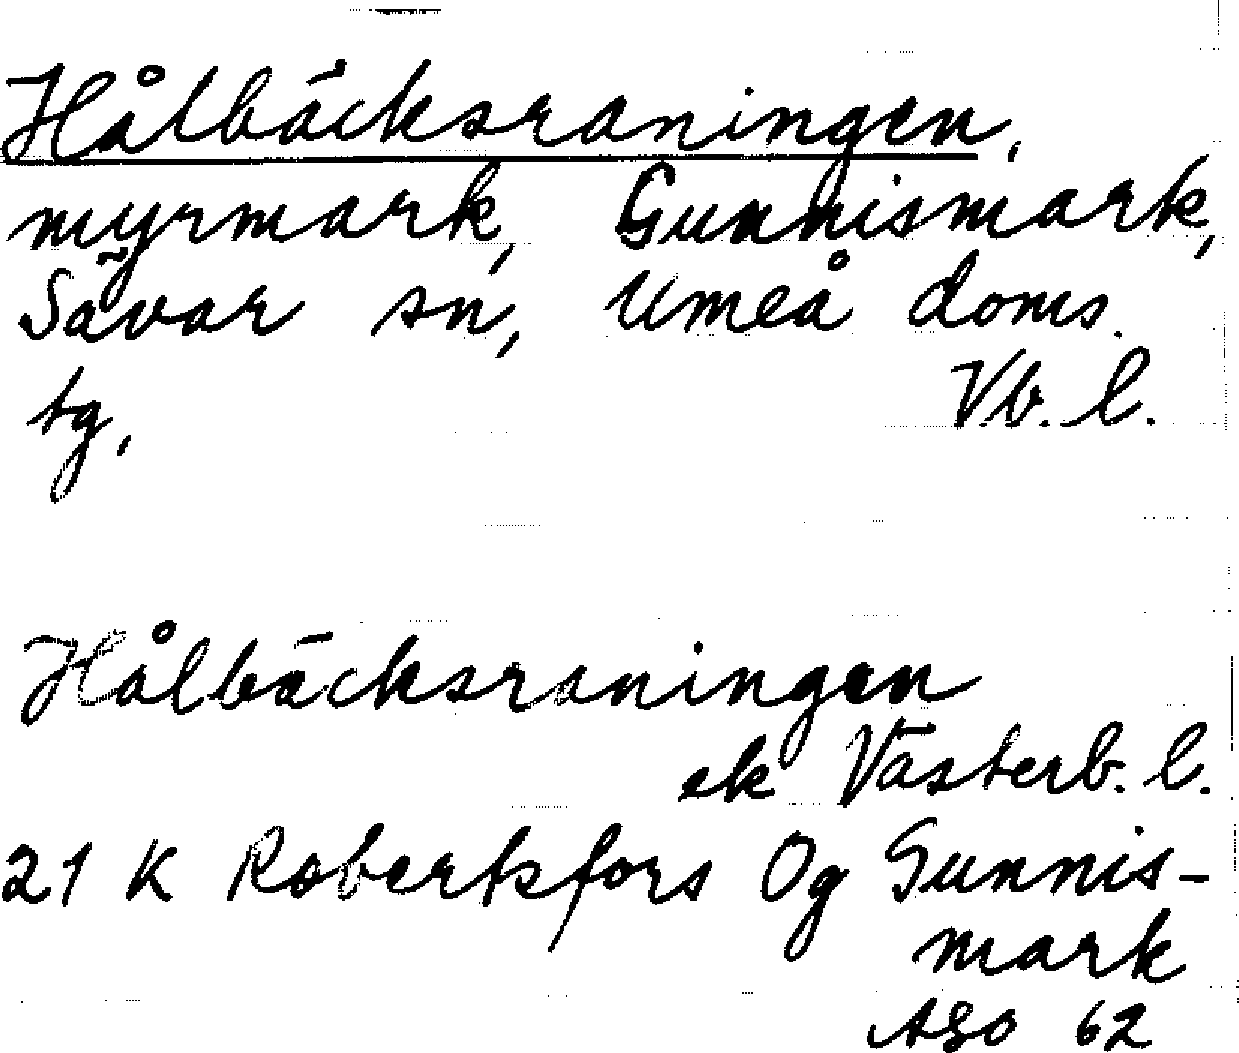 Hålbäcksraningen,
myrmark, Gunnismark,
Sävar sn, Umeå doms.
tg, Vb. l.
Hålbäcksraningen
ek Västerb. l.
21 K Robertsfors Og Gunnis-
mark
AGO 62